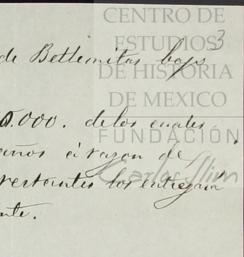 CENTRO DE
ESTUDIOS 3
DE HISTORIA
DE MEXICO
FUNDACIÓN
Carlos Slim
de Betlemitas bajo
0.000. de los cuales
años á razon de
restantes los entregará
nte.